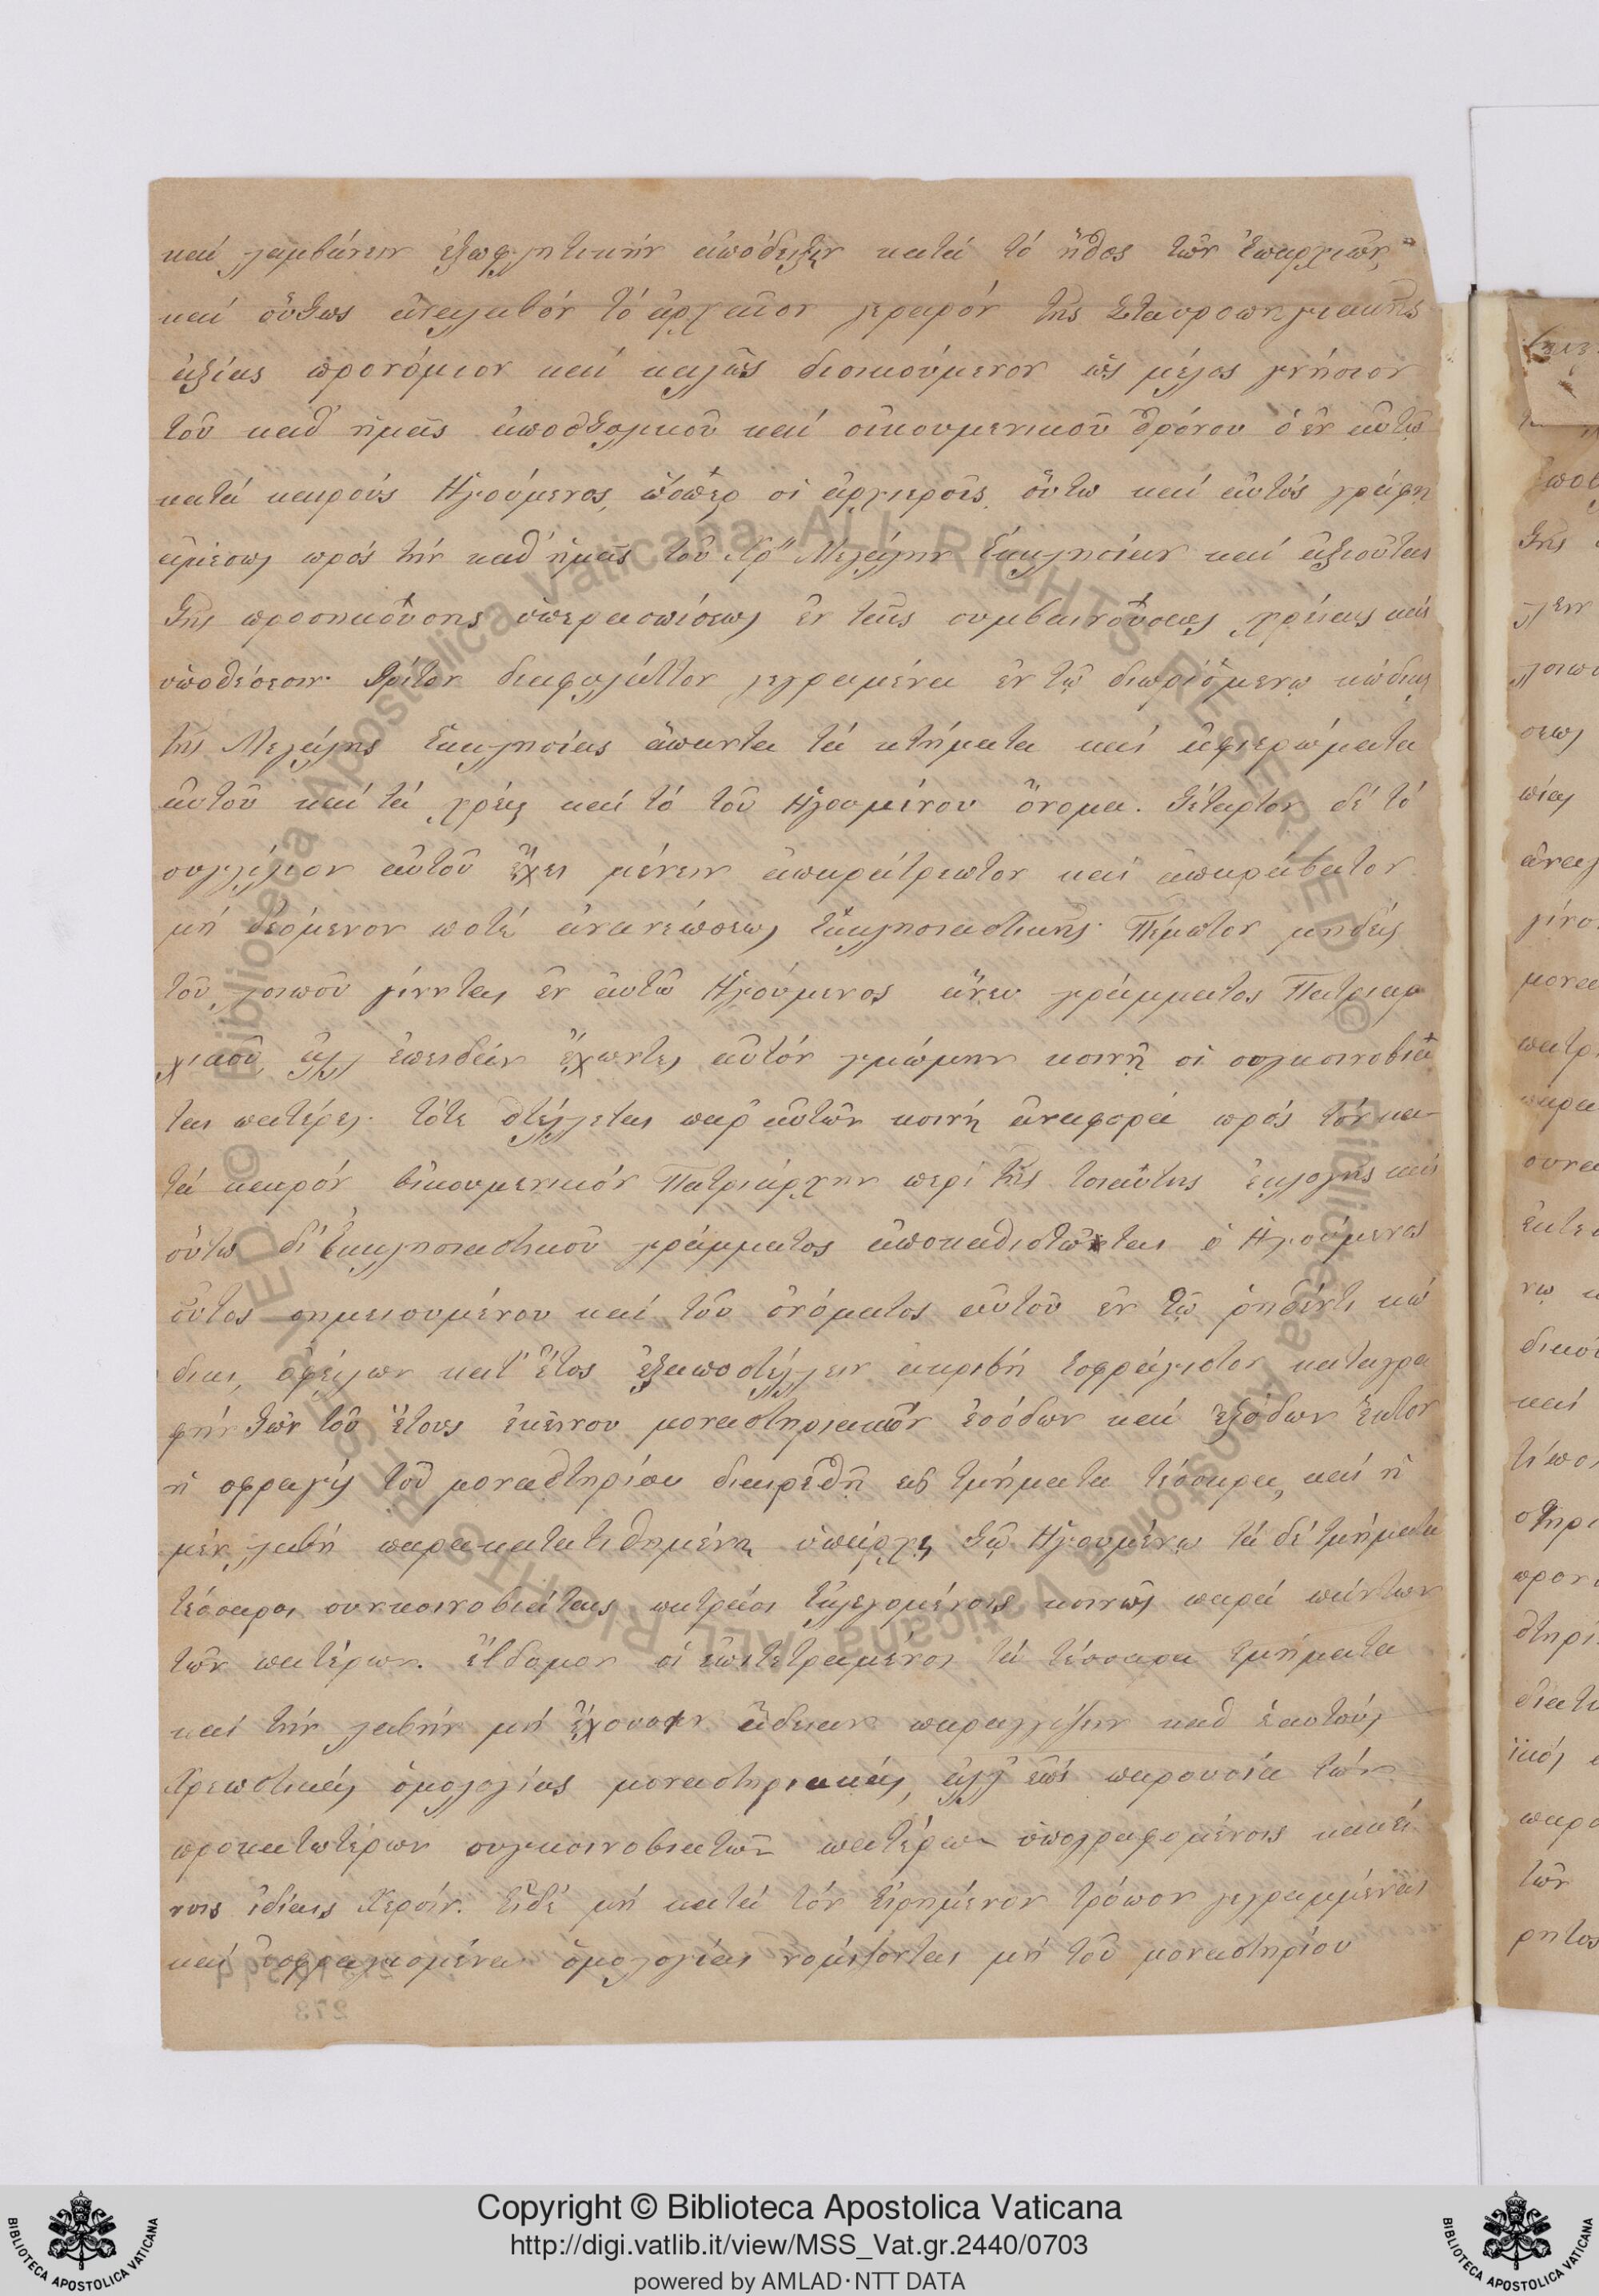 καί λαμβάνειν ἐξωφλητικήν ἀπόδειξιν κατά τό ἦθος τῶν ἐπαρχιῶν,
καί οὕτως ἀναλαβόν τό ἀρχαῖον γεραρόν τῆς Σταυροπηγιακῆς
ἀξίας προνόμιον καί καλῶς διοικούμενον ὡς μέλος γνήσιον
τοῦ καθ ἡμᾶς ἀποστολικοῦ καί οἰκουμενικοῦ θρόνου ὁ ἐν αὐτῷ
κατά καιρούς Ηγούμενος, ὥσπερ οἱ ἀρχιερεῖς, οὕτω καί αὐτός γράφῃ
ἀμέσως πρός τήν καθ ἡμᾶς τοῦ Χρ Μεγάλην Ἐκκλησίαν καί ἀξιοῦται
τῆς προσηκούσης ὑπερασπίσεως ἐν ταῖς συμβαινούσαις χρείαις καί
ὑποθέσεσιν. τρίτον διαφυλάττον γεγραμένα ἐν τῷ διωρισμένῳ κώδικι
τῆς Μεγάλης Ἐκκλησίας ἅπαντα τά κτήματα καί ἀφιερώματα
αὐτοῦ καί τά χρέη καί τό τοῦ Ηγουμένου ὄνομα. τέταρτον δέ τό
συγγίλιον αὐτοῦ ἔχει μένειν ἀπαράτρεπτον καί ἀπαράβατον
μή δεόμενον ποτέ ἀνανεώσεως Ἐκκλησιαστικῆς. Πέμπτον μηδείς
τοῦ λοιποῦ γίνηται ἐν αὐτῷ Ηγούμενος ἄνευ γράμματος Πατριαρ
χικοῦ, ἀλλ ἐπειδάν ἔχωντες αὐτόν γνώμην κοινῇ οἱ συγκοινοβιά
ται πατέρες. τότε στέλλεται παρ αὐτῶν κοινή ἀναφορά πρός τόν κα-
τά καιρόν οἰκουμενικόν Πατριάρχην περί τῆς τοιαύτης ἐκλογῆς καί
οὕτω δι Ἐκκλησιαστικοῦ γράμματος ἀποκαθιστῶται ὁ Ηγούμενος
οὗτος σημειουμένου καί τοῦ ὀνόματος αὐτοῦ ἐν τῷ ῥηθέντι κώ
δικι, ὀφείλων κατ ἔτος ἐξαποστέλλειν ἀκριβῆ ἐσφράγιστον καταγρα
φήν τῶν τοῦ ἔτους ἐκείνου μοναστηριακῶν ἐσόδων καί ἐξόδων ἕκτον
ἡ σφραγίς τοῦ μοναστηρίου διαιρεθῇ εἰς τμήματα τέσσαρα, καί ἡ
μέν λαβή παρακατατιθημένη ὑπάρχῃ τῷ Ηγουμένῳ τά δέ τμήματα
τέσσαροι συνκοινοβιάταις πατράσι ἐκλεγομένοις κοινῶς παρά πάντων
τῶν πατέρων. ἕβδομον οἱ ἐπιτετραμένοι τά τέσσαρα τμήματα
καί τήν λαβήν μή ἔχουσιν ἄδειαν σφραγίζειν καθ ἑαυτούς
Χρεωστικάς ὁμολογίας μοναστηριακάς, ἀλλ ἐπί παρουσίᾳ τῶν
προκατωτέρων συγκοινοβιατῶν πατέρων ὑπογραφομένοις κακεί
νοις ἰδίαις Χερσίν. Εἰδέ μή κατά τόν εἰρημένον τρόπον γεγραμμέναι
καί ἐσφραγισμέναι ὁμολογίαι νομίζονται μή τοῦ μοναστηρίου
Copyright © Biblioteca Apostolica Vaticana
http://digi.vatlib.it/view/MSS_Vat.gr.2440/0703
powered by AMLAD·NTT DATA